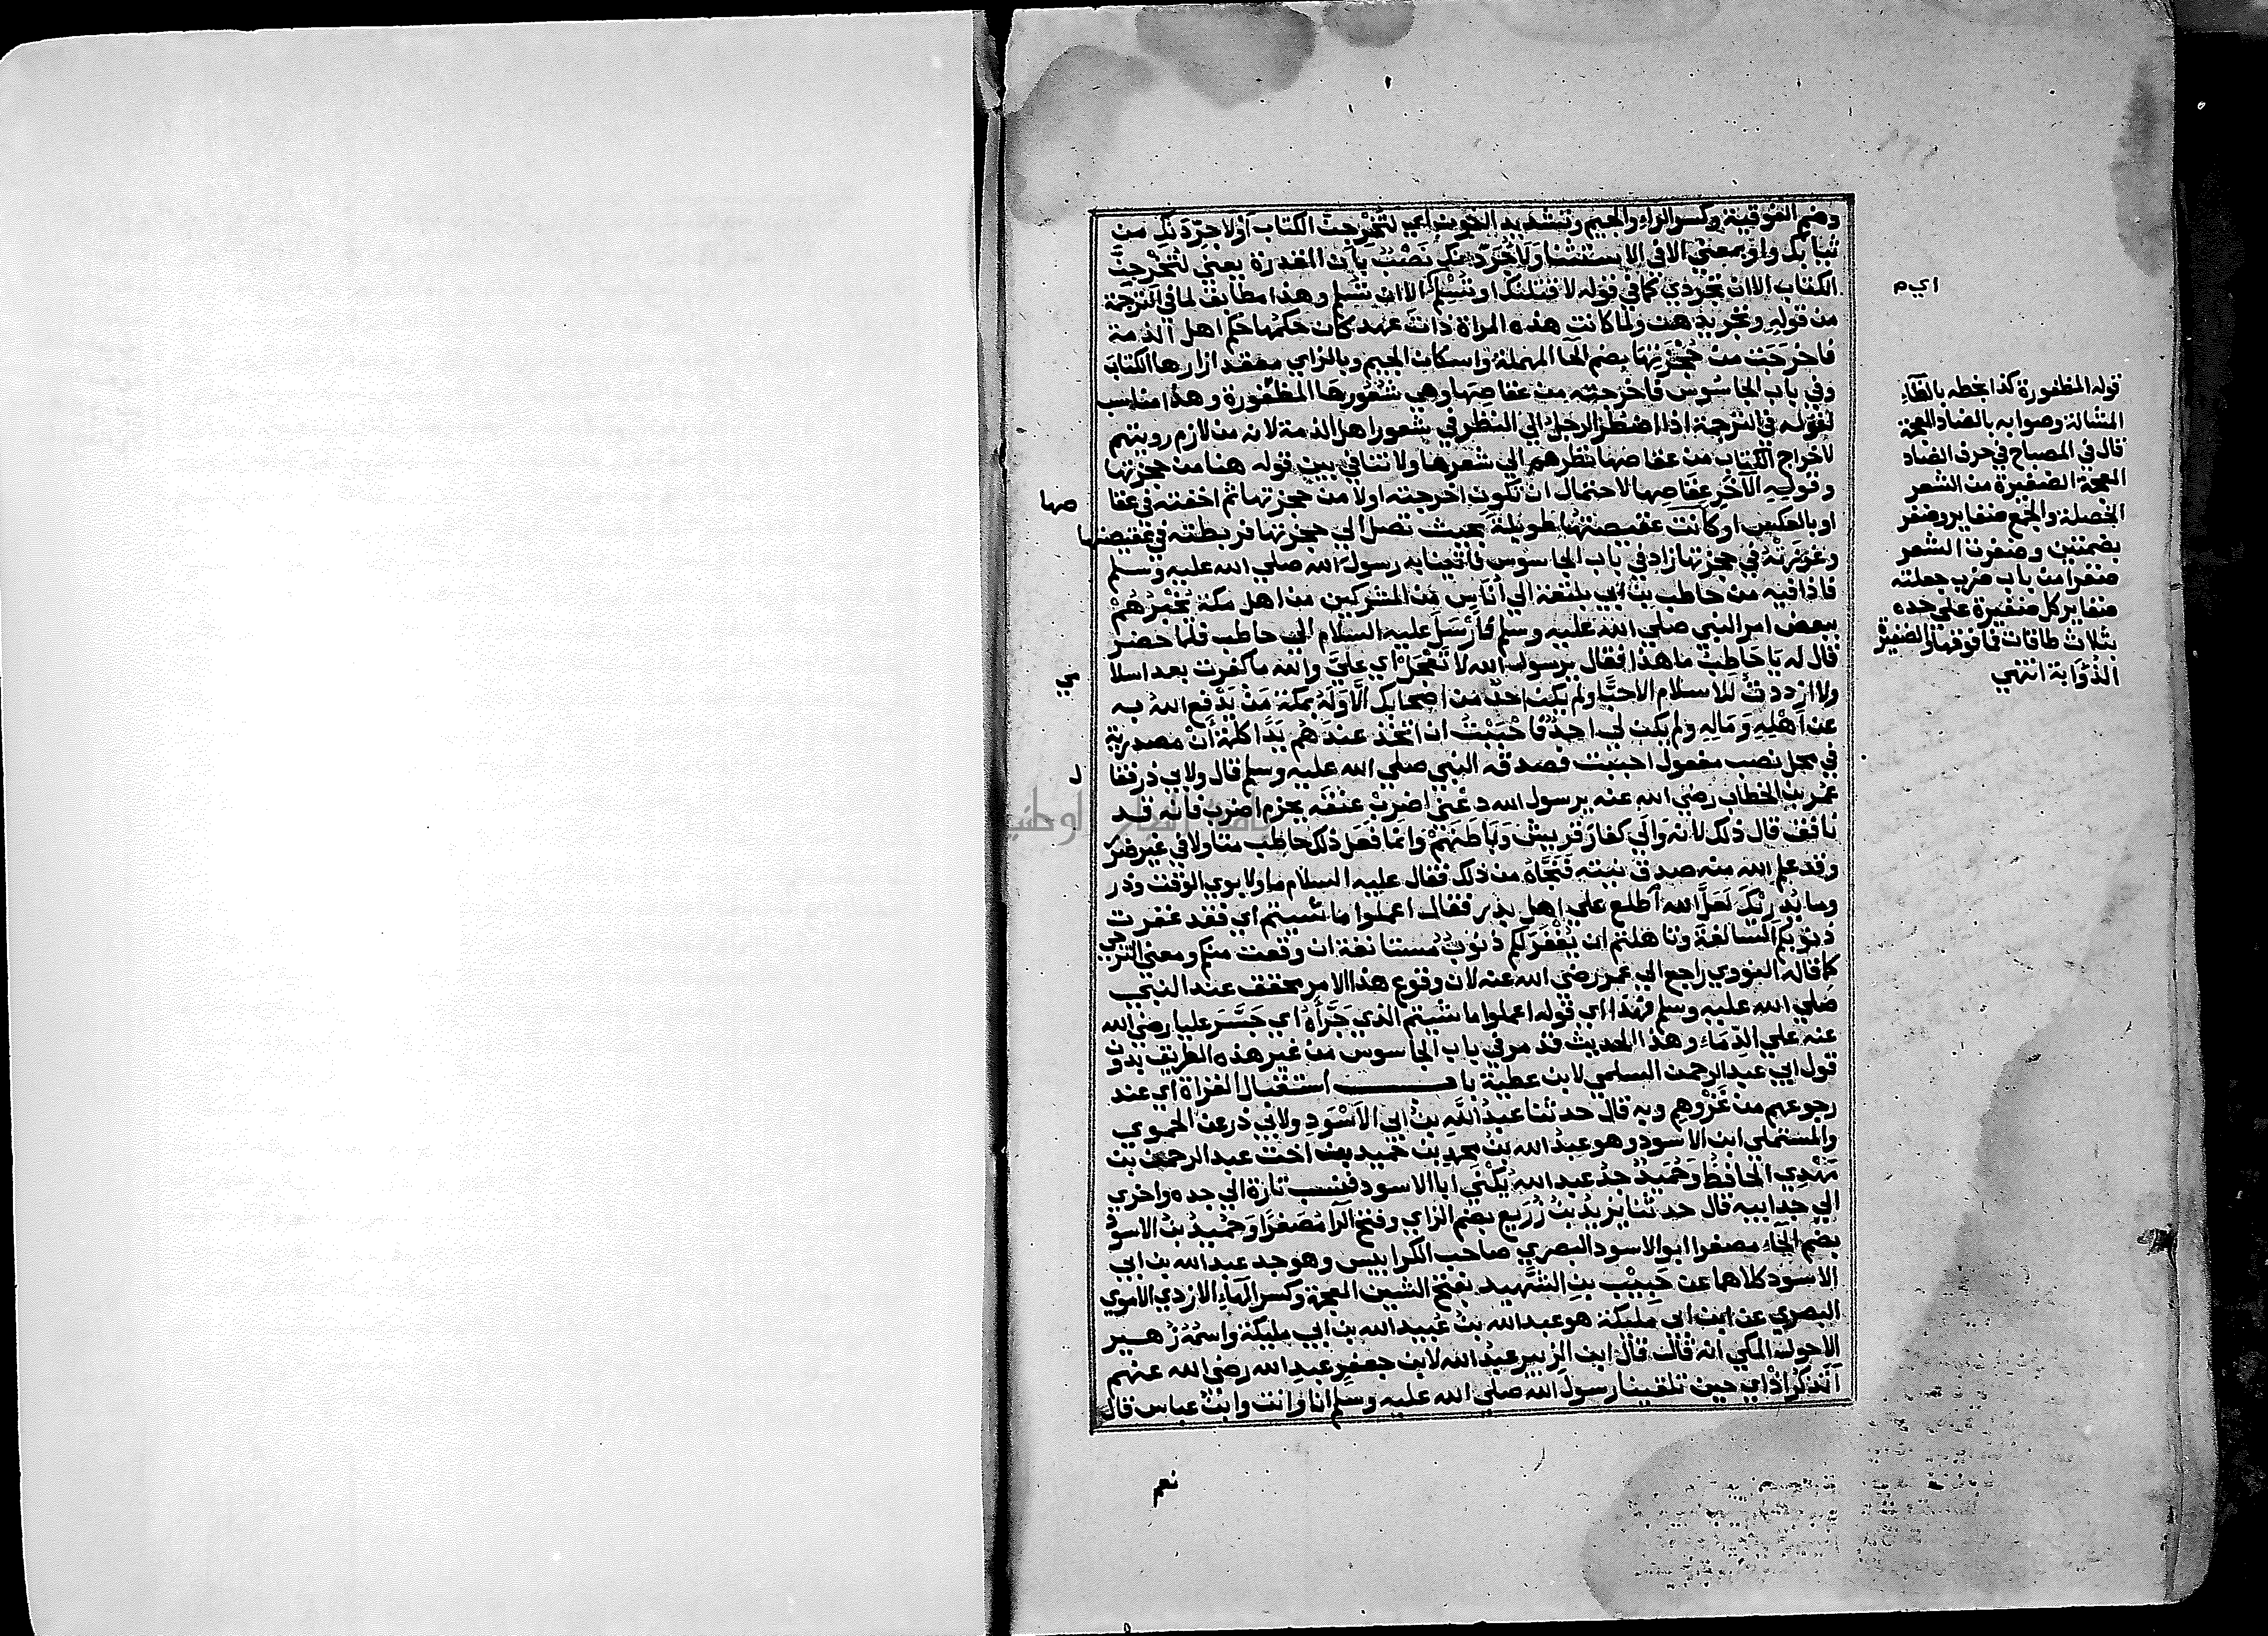 وضم الفوقية وكسر الراء والجيم وتشديد النون اي لتخرجن الكتاب او لاجردنك من
ثيابك واو بمعني الا في الاستثنا ولاجردنك نصب بان المقدرة يعني لتخرجن
الكتاب الا ان تجردي كما في قوله لاقتلنك او تسلم الا ان تسلم وهذا مطابق لما في الترجمة
من قوله وتجريدهن ولما كانت هذه المراة ذات عهد كان حكمها حكم اهل الذمة
فاخرجت من حجزتها بضم الحا المهملة واسكان الجيم وبالزاي معقد ازارها الكتاب
وفي باب الجاسوس فاخرجته من عقاصها وهي شعورها المظفورة وهذا مناسب
لقوله في الترجمة اذا اضطر الرجل الي النظر في شعور اهل الذمة لانه من لازم رويتهم
لاخراج الكتاب من عقاصها نظرهم الي شعرها ولا تنافي بين قوله هنا من حجزتها
وقوله الاخر عقاصها لاحتمال ان تكون اخرجته اولا من حجزتها ثم اخفته في عقا
صها
او بالعكس او كانت عقيصتها طويلة بحيث تصل الي حجزتها فربطته في عقيصتها
وغرزته في حجزتها زاد في باب الجاسوس فاتينا به رسول الله صلي الله عليه وسلم
فاذا فيه من حاطب بن ابي بلتعة الي اناس من المشركين من اهل مكة يخبرهم
ببعض امر النبي صلي الله عليه وسلم فارسل عليه السلام الي حاطب فلما حضر
قال له يا حاطب ما هذا فقال يرسول الله لا تعجل اي علي والله ما كفرت بعد اسلا
مي
ولا ازددت للاسلام الا حبا ولم يكن احد من اصحابك الا وله بمكة من يدفع الله به
عن اهله وماله ولم يكن لي احد فاحببت ان اتخذ عندهم يدا كلمة ان مصدرية
في محل نصب مفعول احببت فصدقه النبي صلي الله عليه وسلم قال ولابي ذر فقا
ل
عمر بن الخطاب رضي الله عنه يرسول الله دعني اضرب عنقه بجزم اضرب فانه قد
نافق قال ذلك لانه والي كفار قريش وباطنهم وانما فعل ذلك حاطب متاولا في غير ضرر
وقد علم الله منه صدق نيته فنجاه من ذلك فقال عليه السلام ما ولابوي الوقت وذر
وما يدريك لعل الله اطلع علي اهل بدر فقال اعملوا ما شيتم اي فقد غفرت
ذنوبكم السالفة وتاهلتم ان يغفر لكم ذنوب مستانفة ان وقعت منكم ومعني الترجي
كما قاله النووي راجع الي عمر رضي الله عنه لان وقوع هذا الامر محقق عند النبي
صلي الله عليه وسلم فهذا اي قوله اعملوا ما شيتم الذي جراه اي جسر عليا رضي الله
عنه علي الدماء وهذا الحديث قد مر في باب الجاسوس من غير هذه الطريق بدون
قول ابي عبد الرحمن السلمي لابن عطية باب استقبال الغزاة اي عند
رجوعهم من غزوهم وبه قال حدثنا عبد الله بن ابي الاسود ولابي ذر عن الحموي
والمستملي ابن الاسود وهو عبد الله بن محمد بن حميد بن اخت عبد الرحمن بن
مهدي الحافظ وحميد جد عبد الله يكني ابا الاسود فنسب تارة الي جده واخري
الي جد ابيه قال حدثنا يزيد بن زريع بضم الزاي وفتح الرا مصغرا وحميد بن الاسود
بضم الحاء مصغرا ابو الاسود البصري صاحب الكرابيس وهو جد عبد الله بن ابي
الاسود كلاهما عن حبيب بن الشهيد بفتح الشين المعجمة وكسر الهاء الازدي الاموي
البصري عن ابن ابي مليكة هو عبد الله بن عبيد الله بن ابي مليكة واسمه زهير
الاحول المكي انه قال قال ابن الزبير عبد الله لابن جعفر عبد الله رضي الله عنهم
اتذكر اذ اي حين تلقينا رسول الله صلي الله عليه وسلم انا وانت وابن عباس قال
نعم
اي م
قوله المظفورة كذا بخطه بالظاء
المشالة وصوابه بالضاد المعجمة
قال في المصباح في حرف الضاد
المعجمة الضفيرة من الشعر
الخصلة والجمع ضفاير وضفر
بضمتين وضفرت الشعر
ضفرا من باب ضرب جعلته
ضفاير كل ضفيرة علي حده
بثلاث طاقات فما فوقها والضفيرة
الذؤابة انتهي